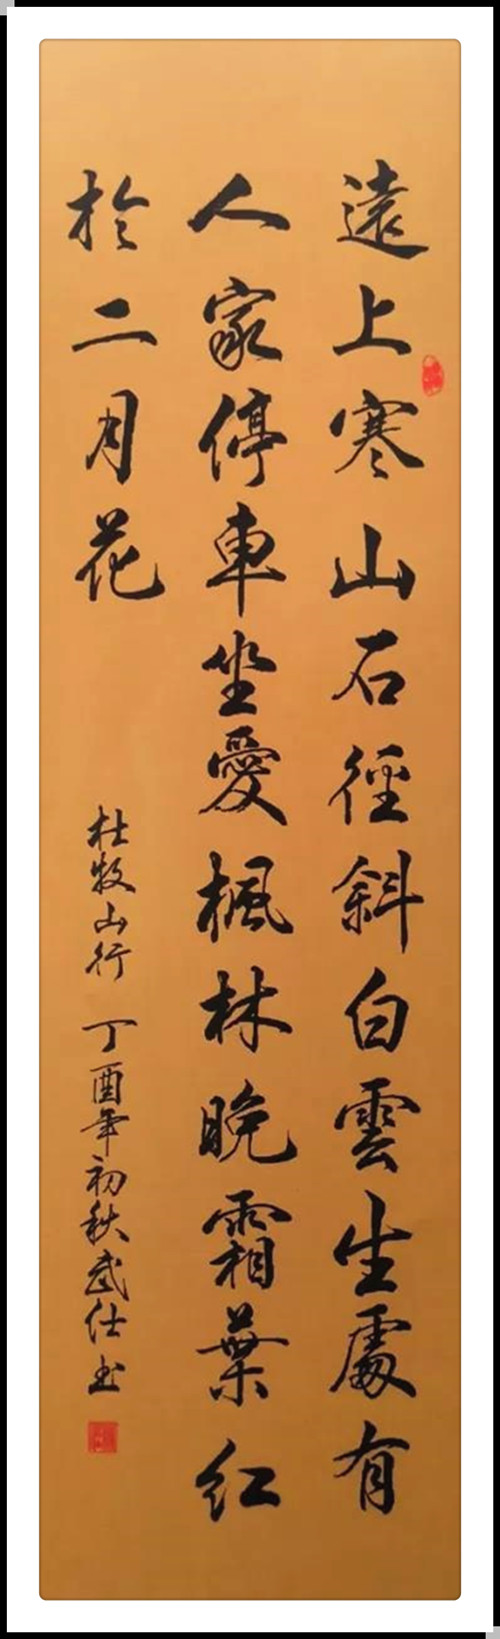 遠上寒山石徑斜白雲生處有
人家停車坐愛楓林晚霜葉紅
於二月花
杜牧山行 丁酉年初秋武仕书